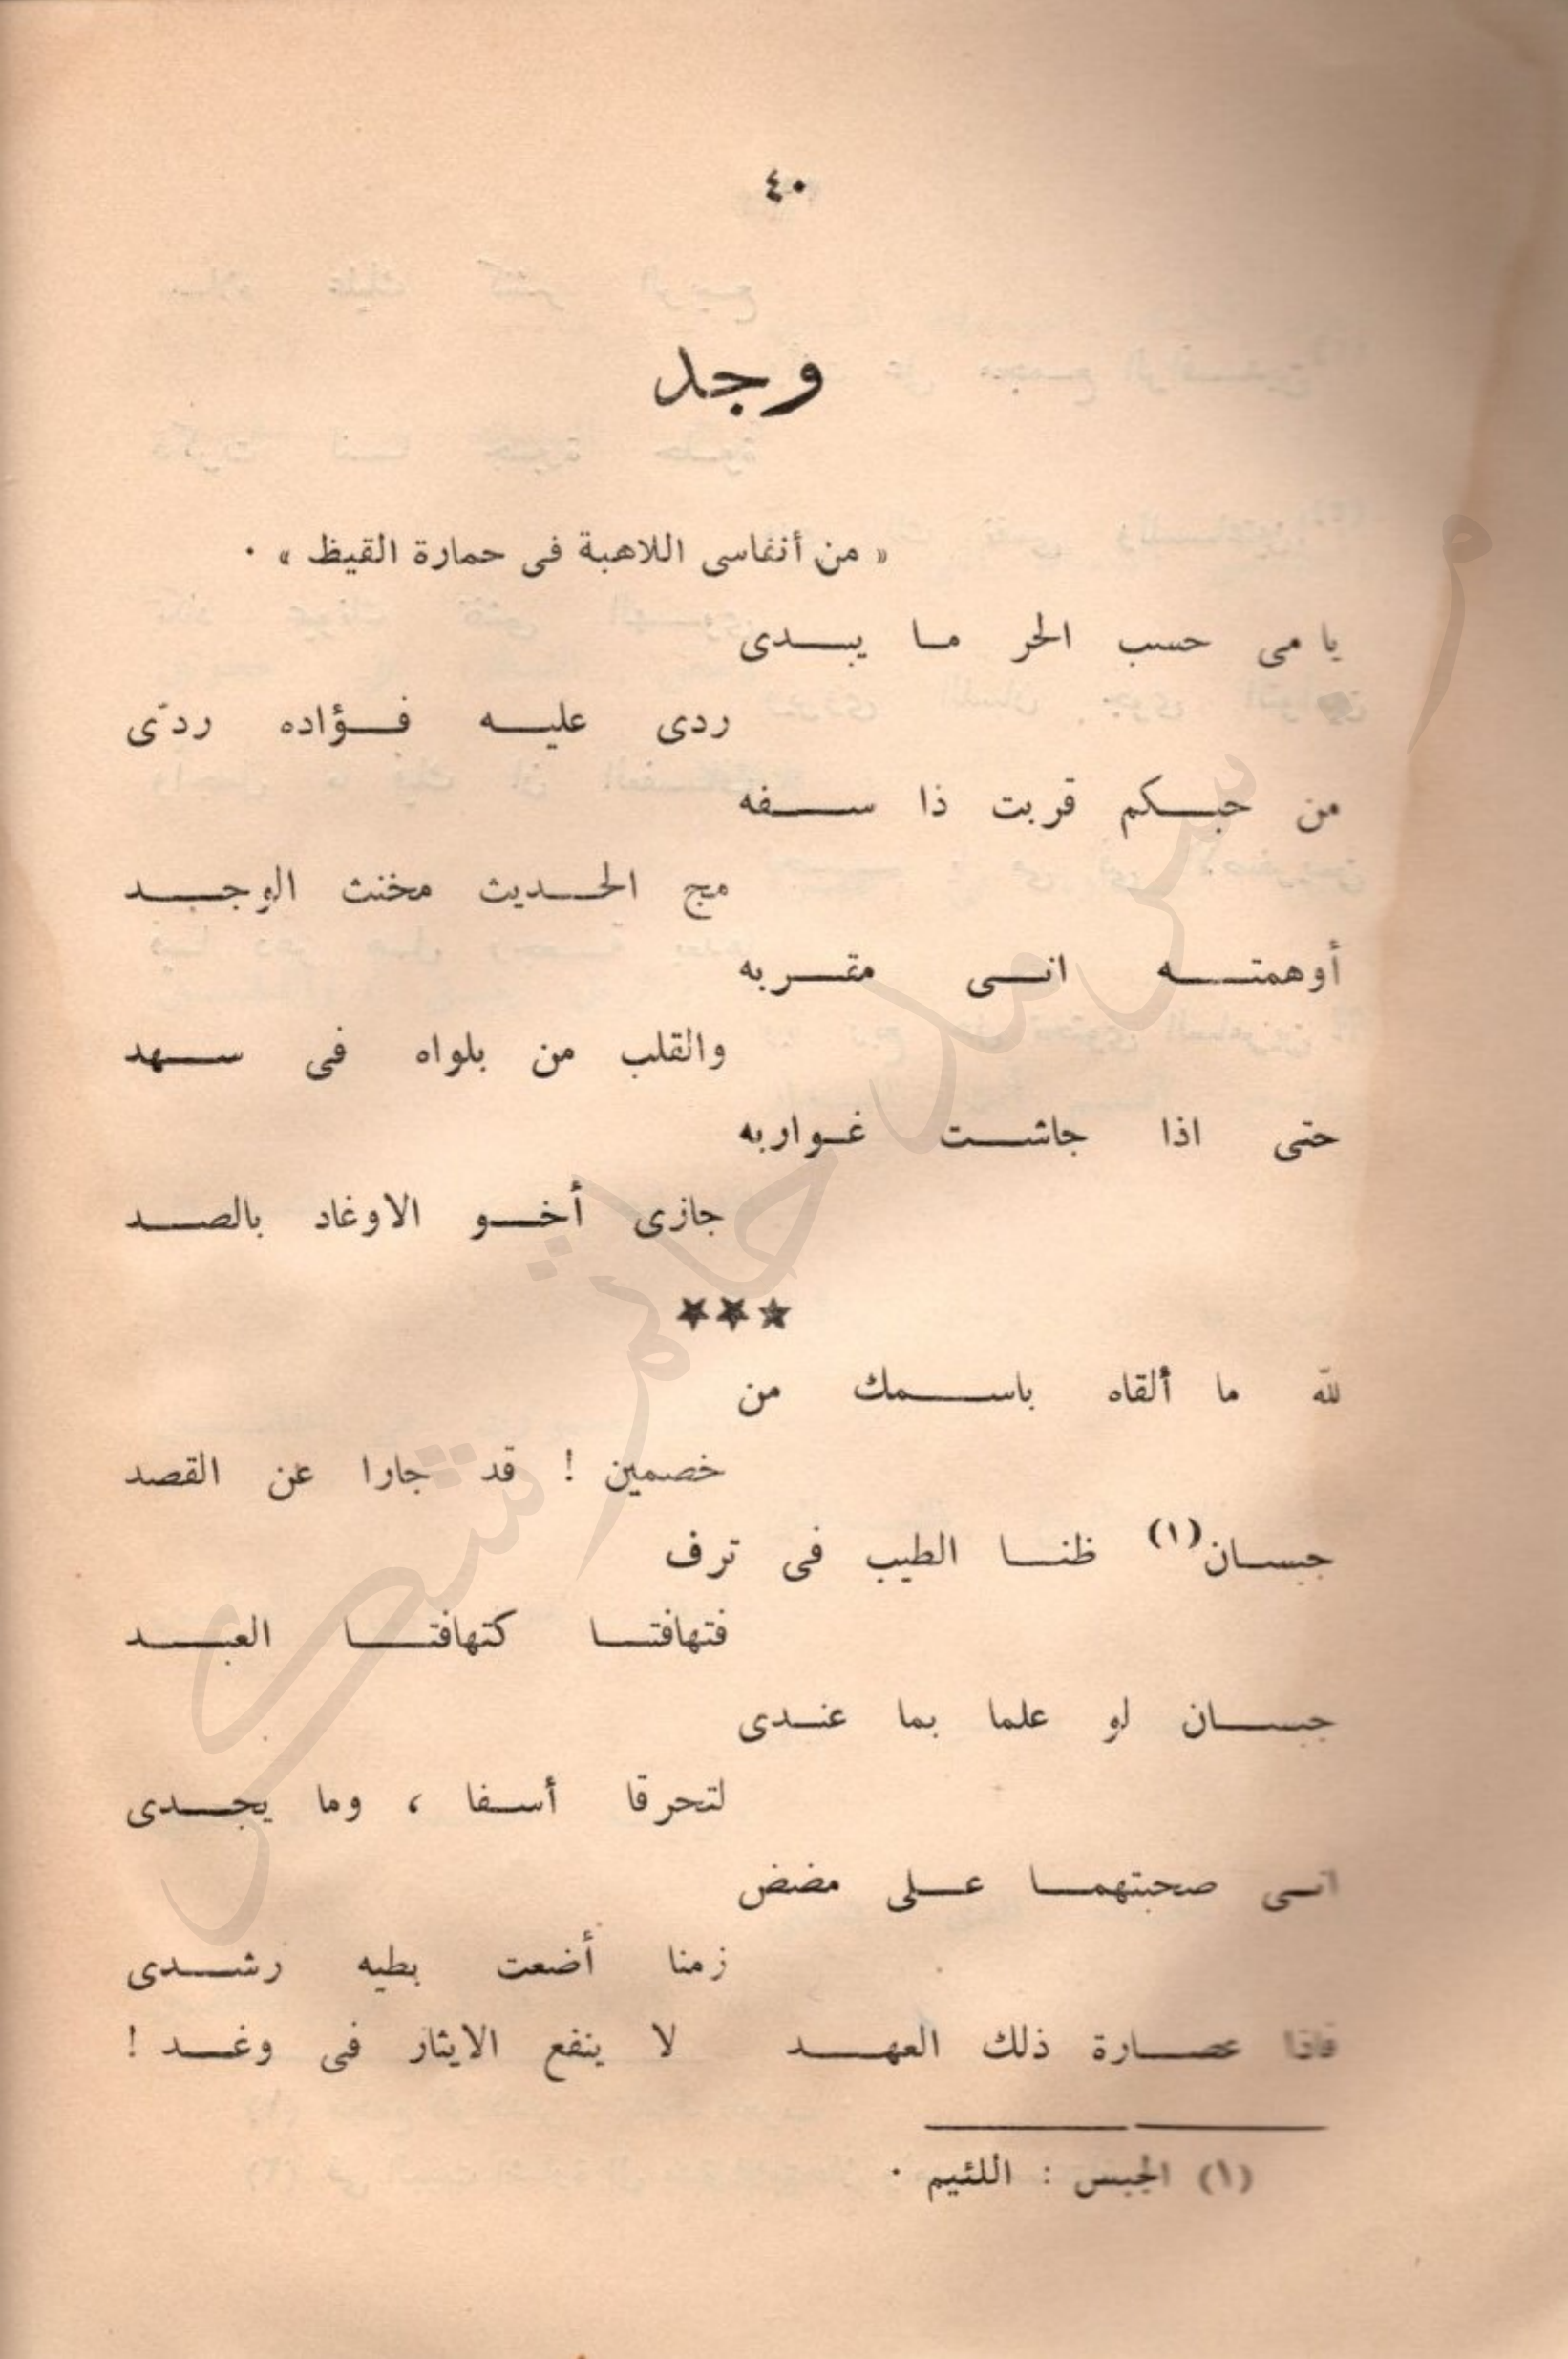 ٤٠
وجد
« من أنفاسى اللاهبة فى حمارة القيظ » .
يا مى حسب الحر ما يبدى
ردى عليه فؤاده ردّى
من حبكم قربت ذا سفه
مج الحديث مخنث الوجد
أوهمته انى مقربه
والقلب من بلواه فى سهد
حتى اذا جاشت غواربه
جازى أخو الاوغاد بالصد
★★★
لله ما ألقاه باسمك من
خصمين ! قد جارا عن القصد
جبسان(١) ظنا الطيب فى ترف
فتهافتا كتهافتا العبد
جبسان لو علما بما عندى
لتحرقا أسفا ، وما يجدى
انى صحبتهما على مضض
زمنا أضعت بطيه رشدى
فاذا عصارة ذلك العهد لا ينفع الايثار فى وغد !
(١) الجبس : اللئيم .